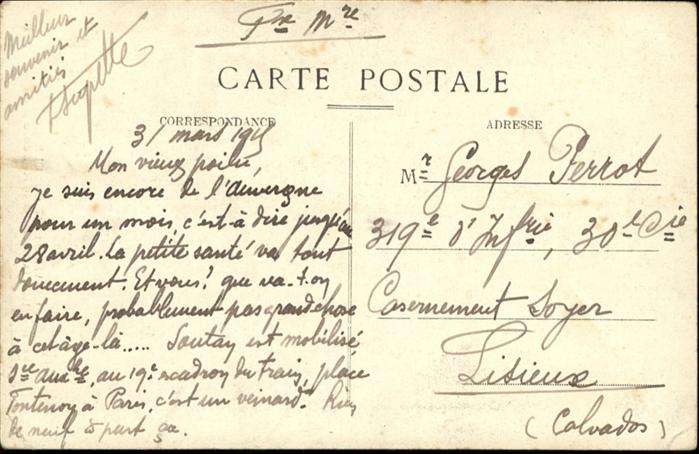 Fse Mre
Meilleur
souvenir et
amitiés
CARTE POSTALE
CORRESPONDANCE
31 mars 1915
Mon vieux poilu,
je suis encore de l'Auvergne
pour un mois, c'est-à dire jusqu'au
28 avril. La petite santé va tout
doucement. Et vous? que va-t-on
en faire, probablement pas grand chose
à cet âge-là..... Soutay est mobilisé
Sce auxre, au 19e escadron du train, place
Fontenoy à Paris, c'est un veinard. Rien
de neuf à part ça.
ADRESSE
Mr Georges Perrot
319e d'Infrie, 30e Cie
Casernement Loyer
Lisieux
(Calvados)